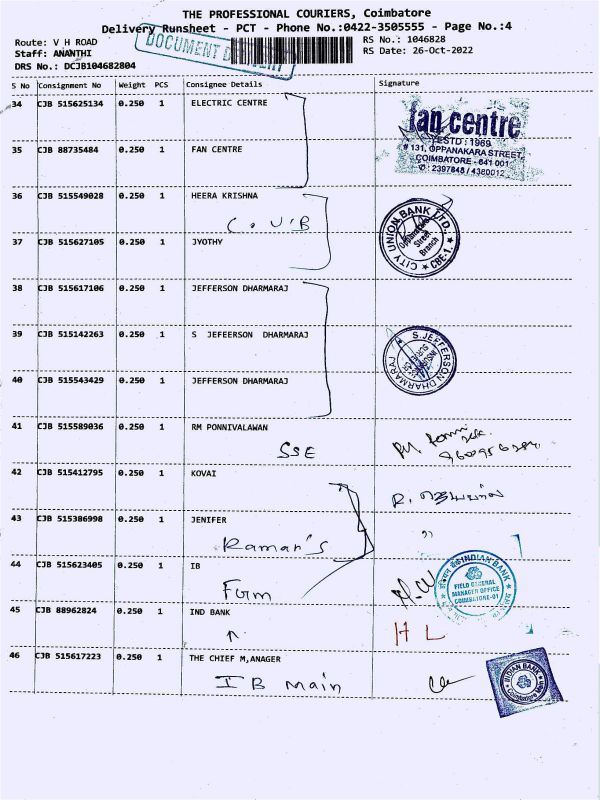 THE PROFESSIONAL COURIERS, Coimbatore
Delivery Runsheet - PCT - Phone No.:0422-3505555 - Page No.:4
DOCUMENT DELIVERY
Route: V H ROAD
RS No.: 1046828
Staff: ANANTHI
RS Date: 26-Oct-2022
DRS No.: DCJB104682804
S No Consignment No Weight PCS Consignee Details Signature
34 CJB 515625134 0.250 1 ELECTRIC CENTRE
fan centre
ESTD : 1969
# 131, OPPANAKARA STREET,
COIMBATORE - 641 001
✆ : 2397848 / 4380012
35 CJB 88735484 0.250 1 FAN CENTRE
36 CJB 515549028 0.250 1 HEERA KRISHNA
C.U.B
CITY UNION BANK LTD.,
Oppanakara
Street
Branch
★ CBE-1. ★
37 CJB 515627105 0.250 1 JYOTHY
38 CJB 515617106 0.250 1 JEFFERSON DHARMARAJ
39 CJB 515142263 0.250 1 S JEFEERSON DHARMARAJ
S. JEFFERSON DHARMARAJ
40 CJB 515543429 0.250 1 JEFFERSON DHARMARAJ
41 CJB 515589036 0.250 1 RM PONNIVALAWAN
SSE
42 CJB 515412795 0.250 1 KOVAI
43 CJB 515386998 0.250 1 JENIFER
Raman's
44 CJB 515623405 0.250 1 IB
Form
INDIAN BANK
FIELD GENERAL
MANAGER OFFICE
COIMBATORE-01
45 CJB 88962824 0.250 1 IND BANK
H L
46 CJB 515617223 0.250 1 THE CHIEF M,ANAGER
IB main
INDIAN BANK
Coimbatore Main